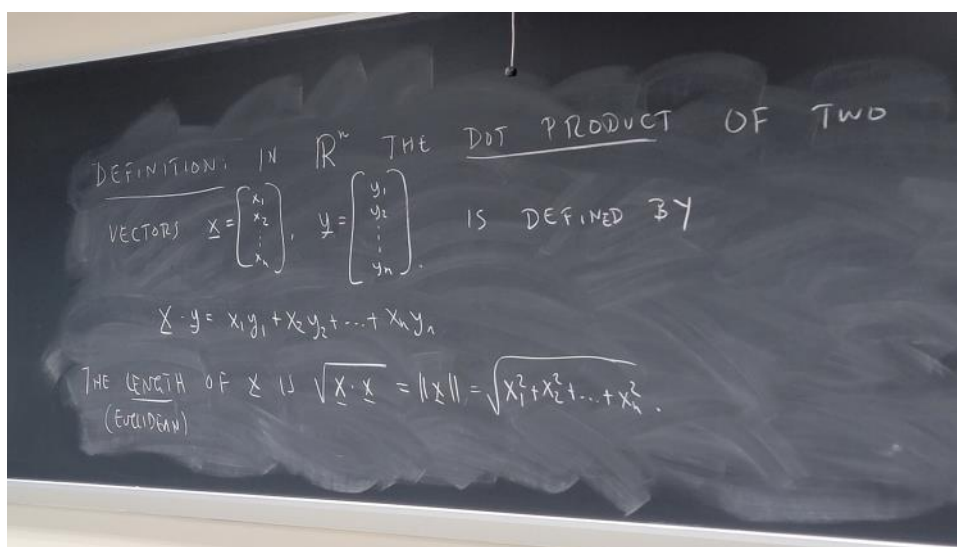 DEFINITION: IN ℝⁿ THE DOT PRODUCT OF TWO
VECTORS x = [x₁ x₂ ⋮ xₙ], y = [y₁ y₂ ⋮ yₙ]. IS DEFINED BY
x · y = x₁y₁ + x₂y₂ + ... + xₙyₙ
THE LENGTH OF x IS √(x · x) = ||x|| = √(x₁² + x₂² + ... + xₙ²).
(EUCLIDEAN)